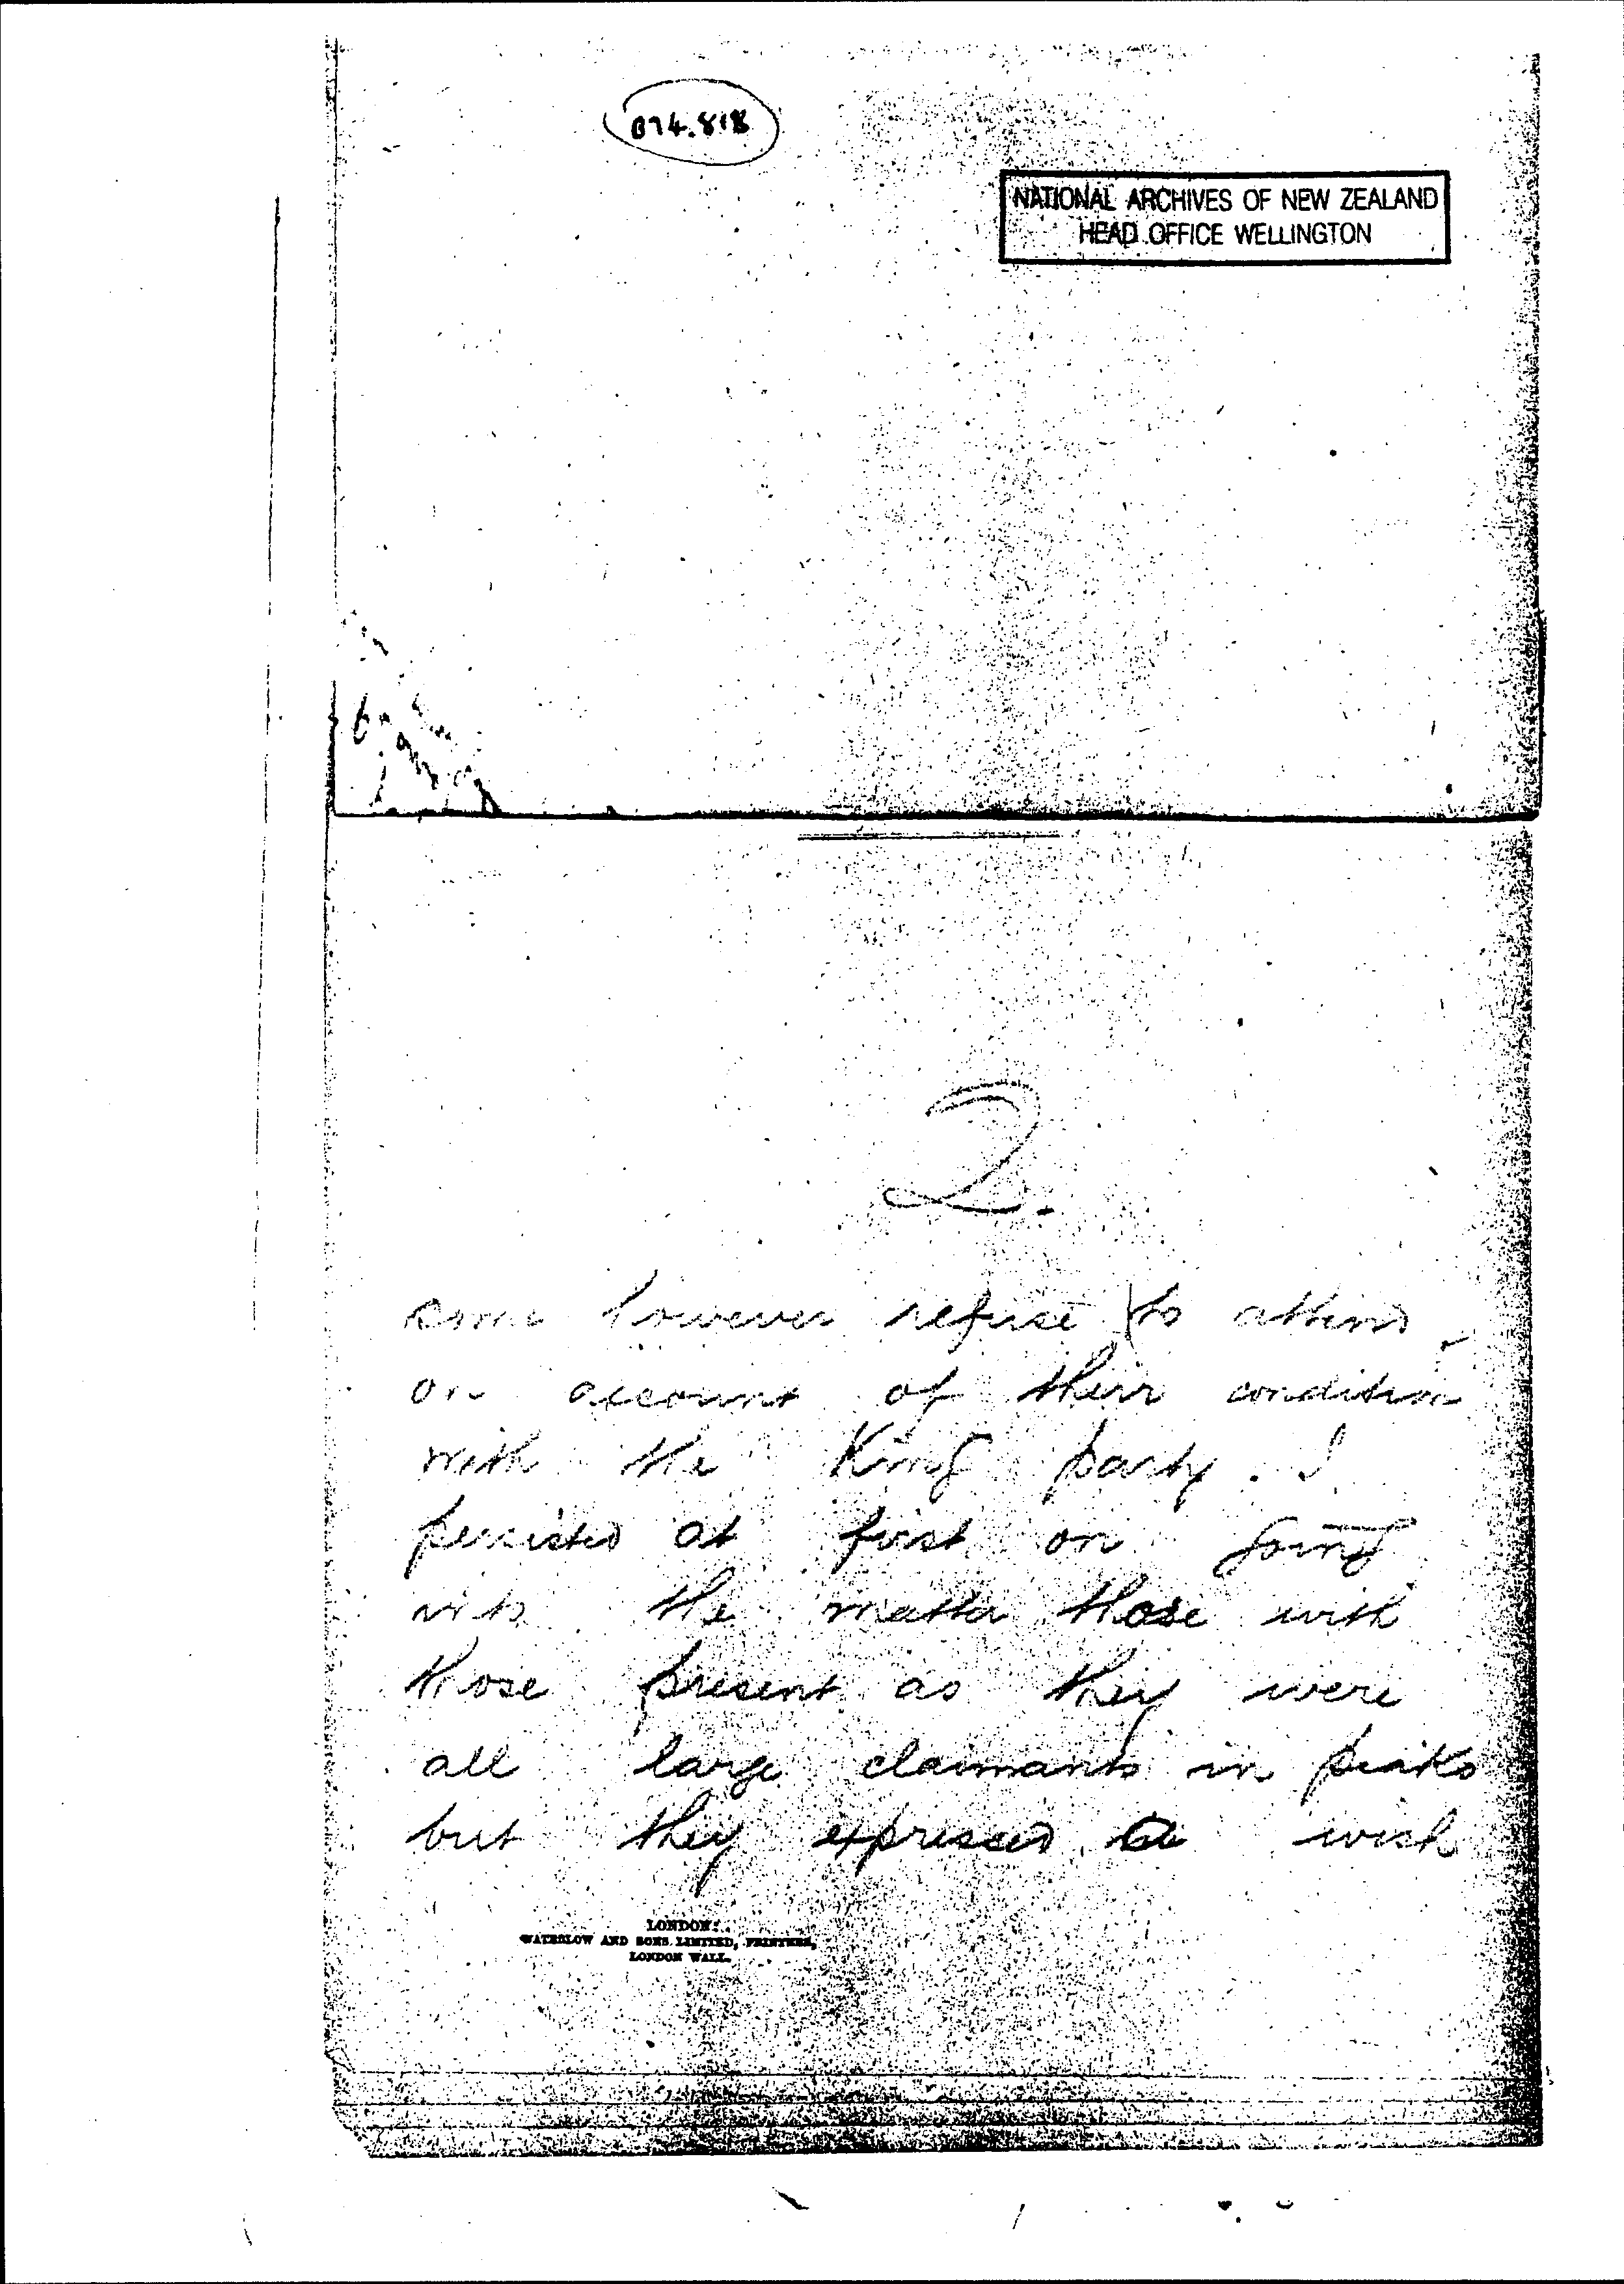 B74.818
NATIONAL ARCHIVES OF NEW ZEALAND
HEAD OFFICE WELLINGTON
2.
some however refuse to attend
on account of their condition
with the King party. I
persisted at first on going
into the matter those with
those present as they were
all large claimants in piako
but they expressed a wish
LONDON:
WATERLOW AND SONS LIMITED, PRINTERS,
LONDON WALL.